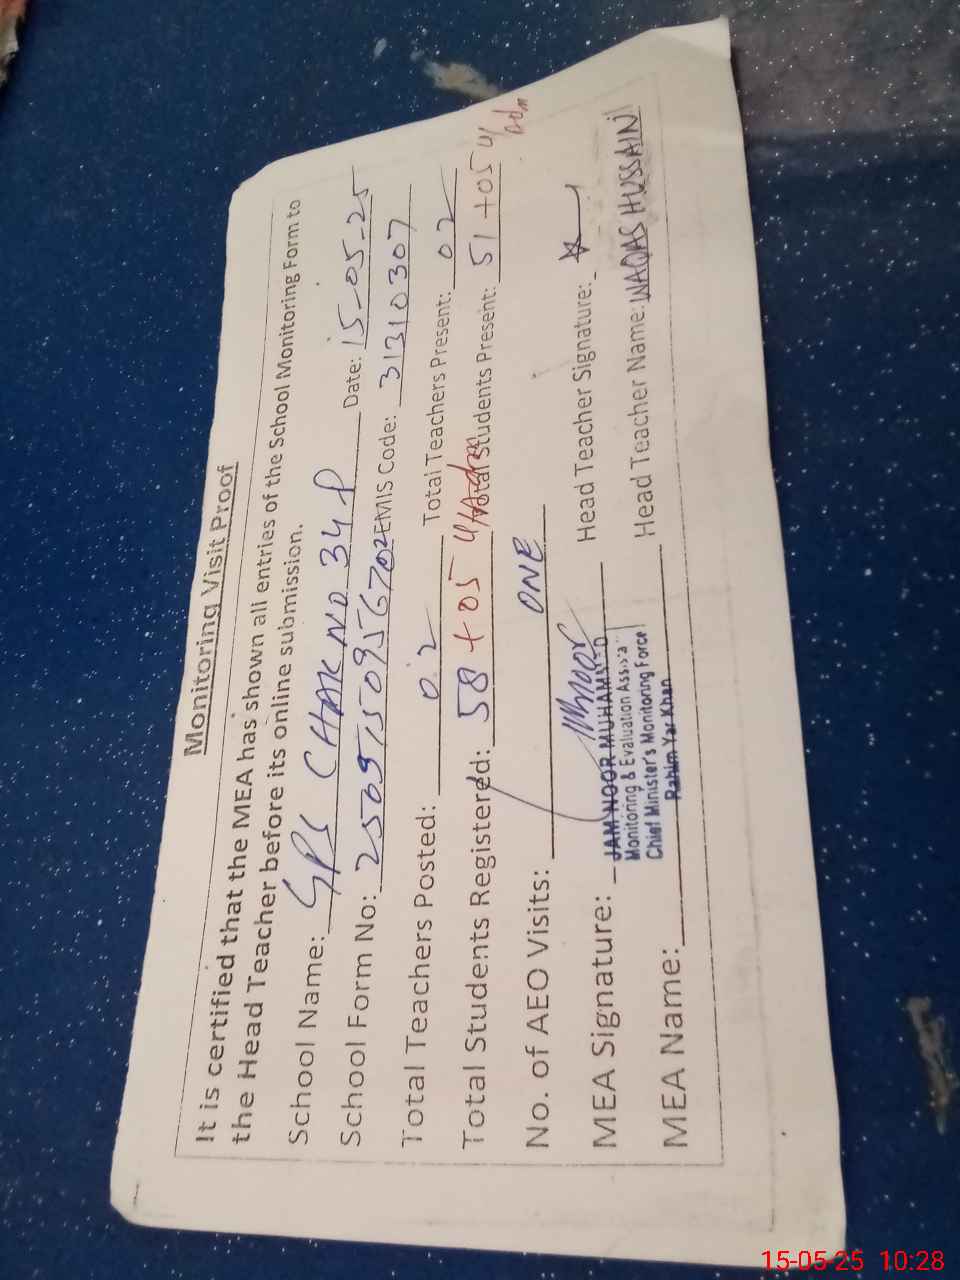 Monitoring Visit Proof
It is certified that the MEA has shown all entries of the School Monitoring Form to
the Head Teacher before its online submission.
School Name: GPS CHAK NO 34 P Date: 15-05-25
School Form No: EMIS Code: 31310307
Total Teachers Posted: 02 Total Teachers Present: 02
Total Students Registered: 58 + 05 U/Adm Total Students Present: 51 + 05 U/Adm
No. of AEO Visits: ONE
MEA Signature: Head Teacher Signature:
JAM NOOR MUHAMMAD
Monitoring & Evaluation Assista
Chief Minister's Monitoring Force
Rahim Yar Khan
MEA Name: Head Teacher Name: WAQAS HUSSAIN
15-05-25 10:28